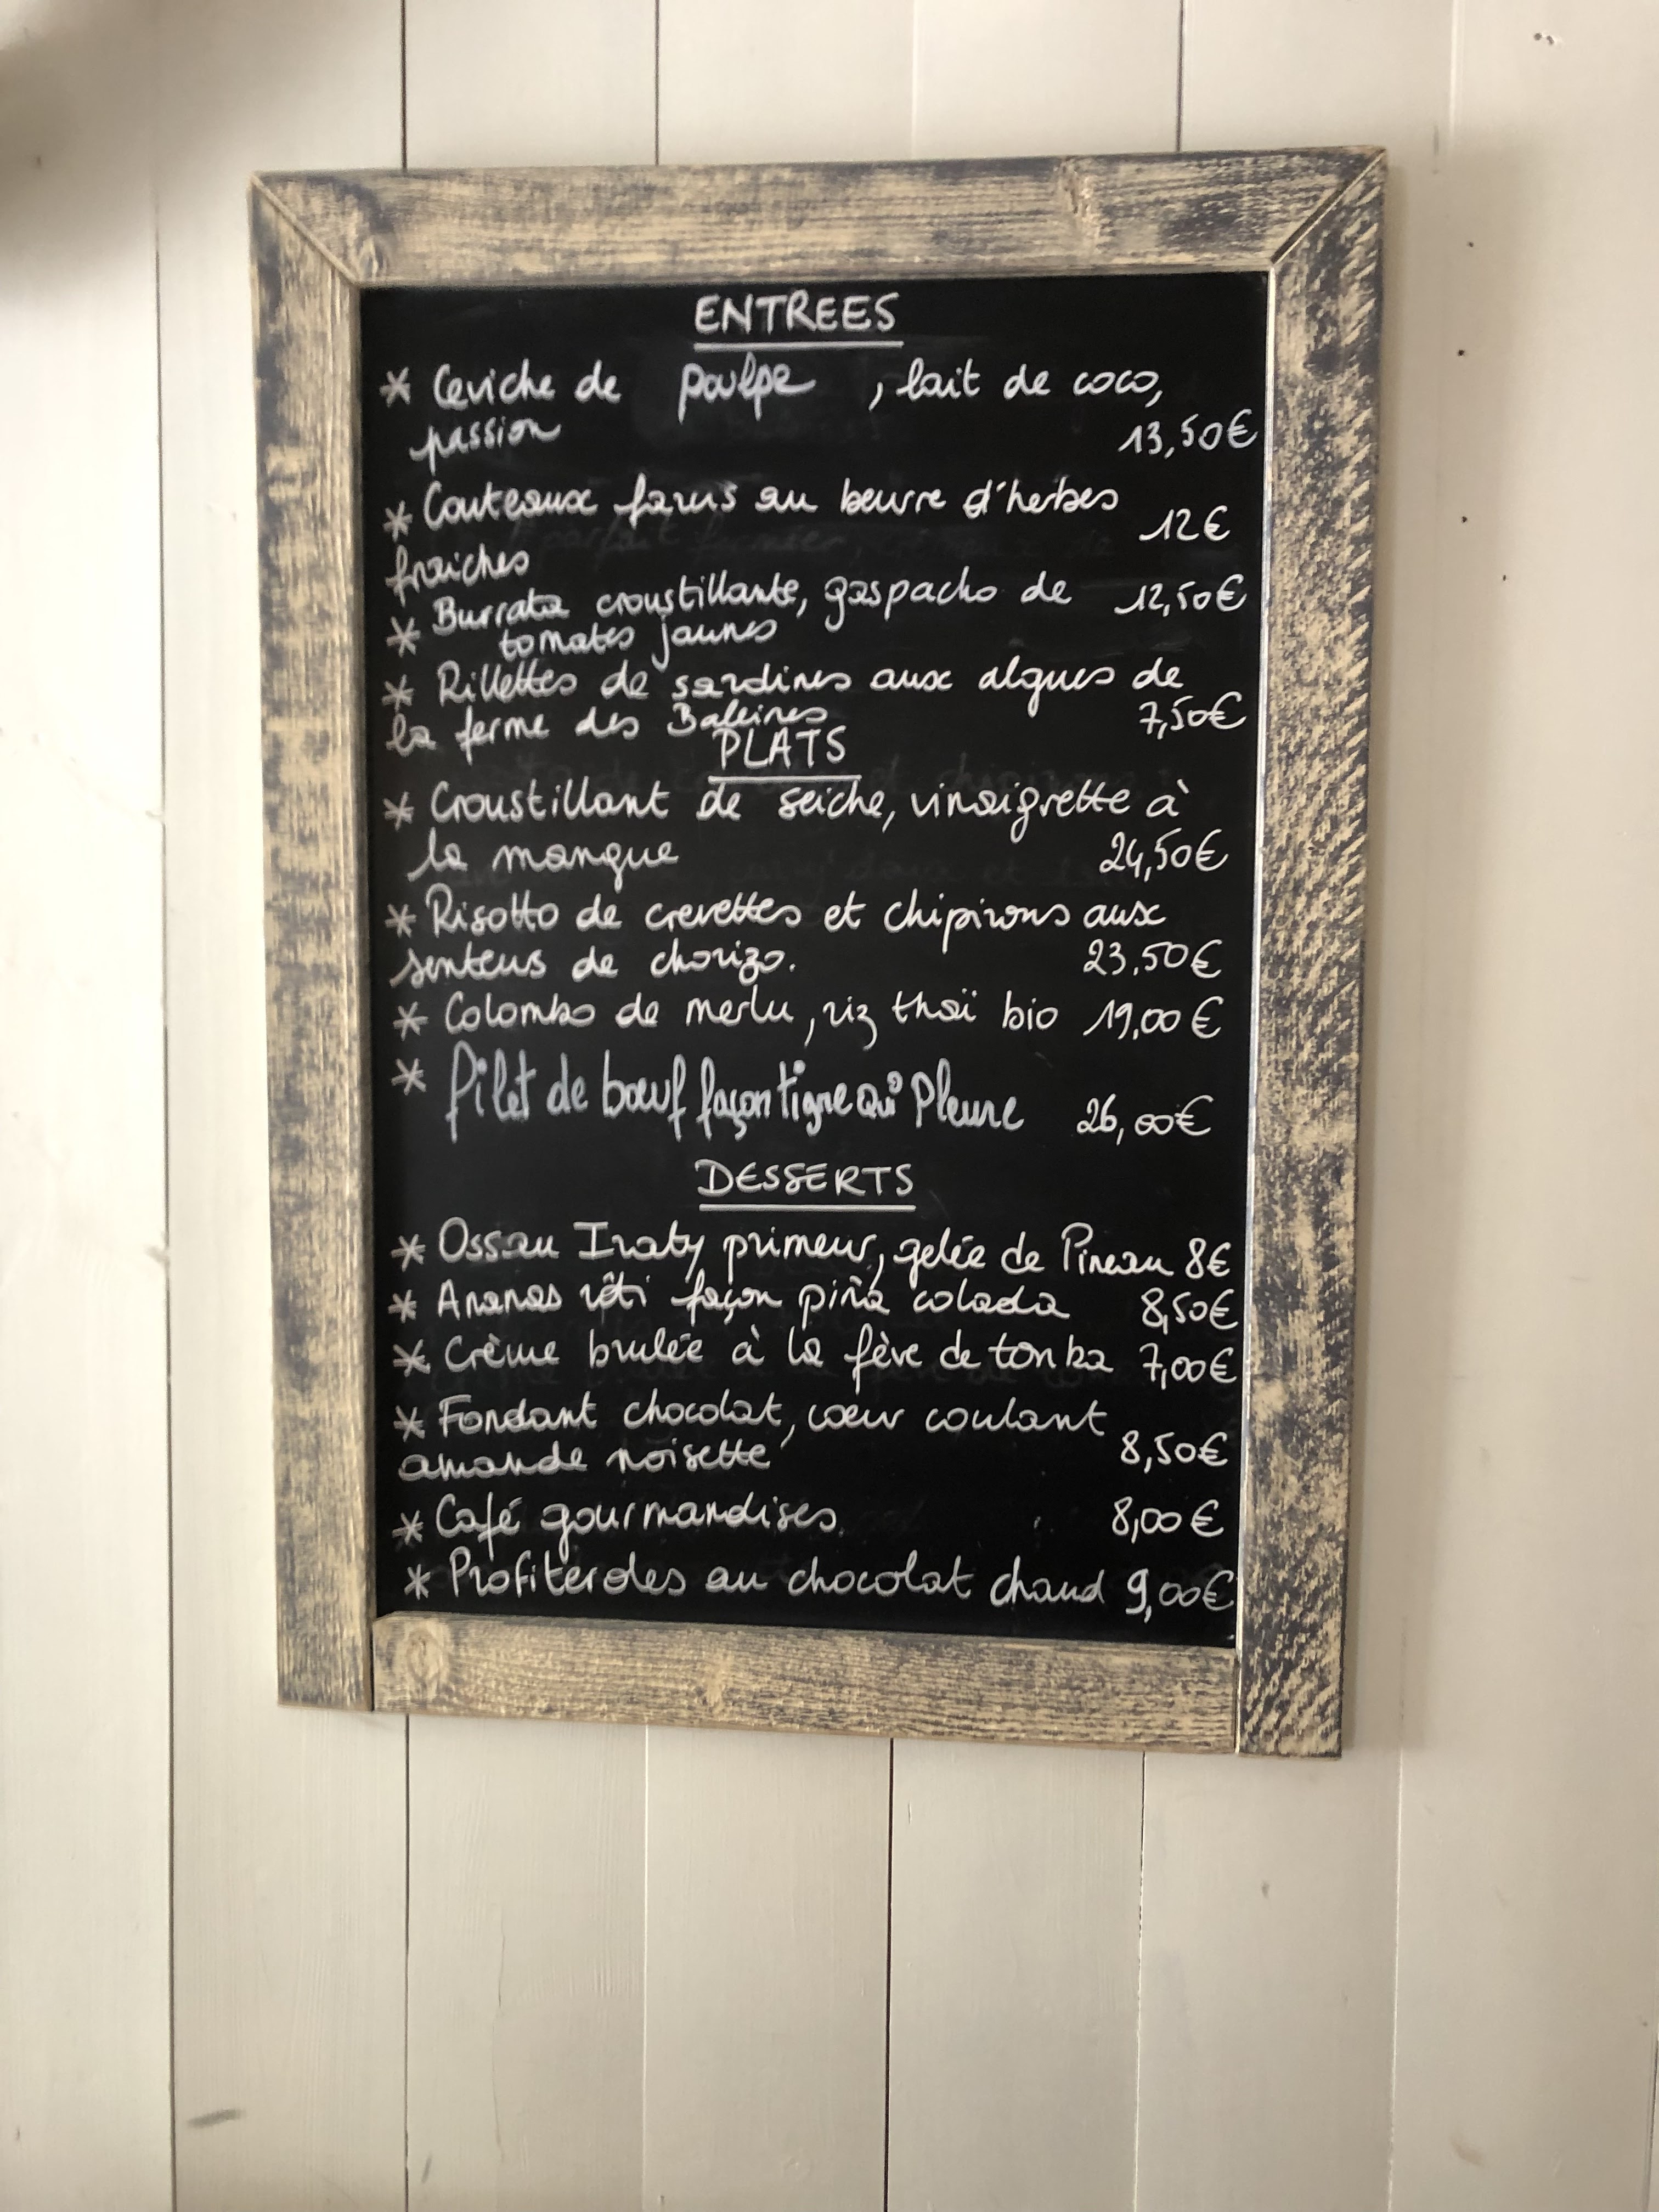 ENTREES
* Ceviche de poulpe , lait de coco,
passion 13,50€
* Couteaux farcis au beurre d'herbes
fraiches 12€
* Burrata croustillante, gaspacho de 12,50€
tomates jaunes
* Rillettes de sardines aux algues de
la ferme des Baleines 7,50€
PLATS
* Croustillant de seiche, vinaigrette à
la mangue 24,50€
* Risotto de crevettes et chipirons aux
senteurs de chorizo. 23,50€
* Colombo de merlu, riz thaï bio 19,00€
* filet de bœuf façon tigre qui Pleure 26,00€
DESSERTS
* Ossau Iraty primeur, gelée de Pineau 8€
* Ananas rôti façon piña colada 8,50€
* Crème brulée à la fève de tonka 7,00€
* Fondant chocolat, cœur coulant
amande noisette 8,50€
* Café gourmandises 8,00€
* Profiteroles au chocolat chaud 9,00€